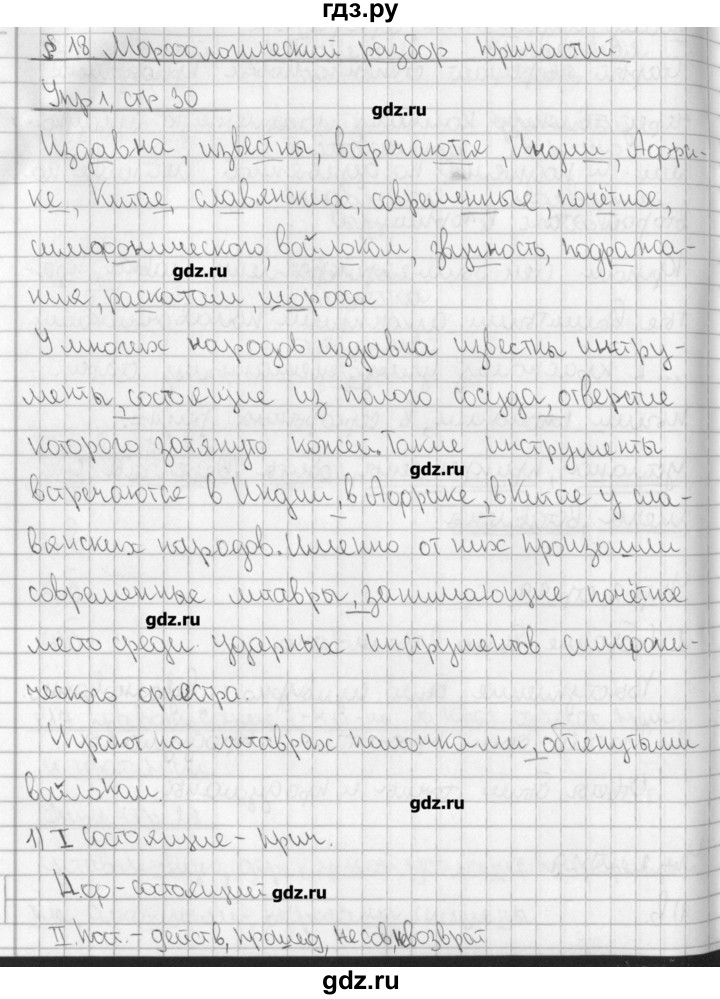 гдз.ру
§ 18 Морфологический разбор причастий
Упр 1, стр 30
gdz.ru
Издавна, известны, встречаются, Индии, Афри-
ке, Китае, славянских, современные, почётное,
симфонического, войлоком, звучность, подража-
gdz.ru
ния, раскатам, шороха
У многих народов издавна известны инстру-
менты, состоящие из полого сосуда, отверстие
которого затянуто кожей. Такие инструменты
gdz.ru
встречаются в Индии, в Африке, в Китае у сла-
вянских народов. Именно от них произошли
современные литавры, занимающие почётное
gdz.ru
место среди ударных инструментов симфони-
ческого оркестра.
Играют на литаврах палочками, обтянутыми
войлоком.
gdz.ru
1) I Состоящие - прич.
Н.ф - состоящий
gdz.ru
II. Пост. - действ, прошед, несов, невозврат
gdz.ru